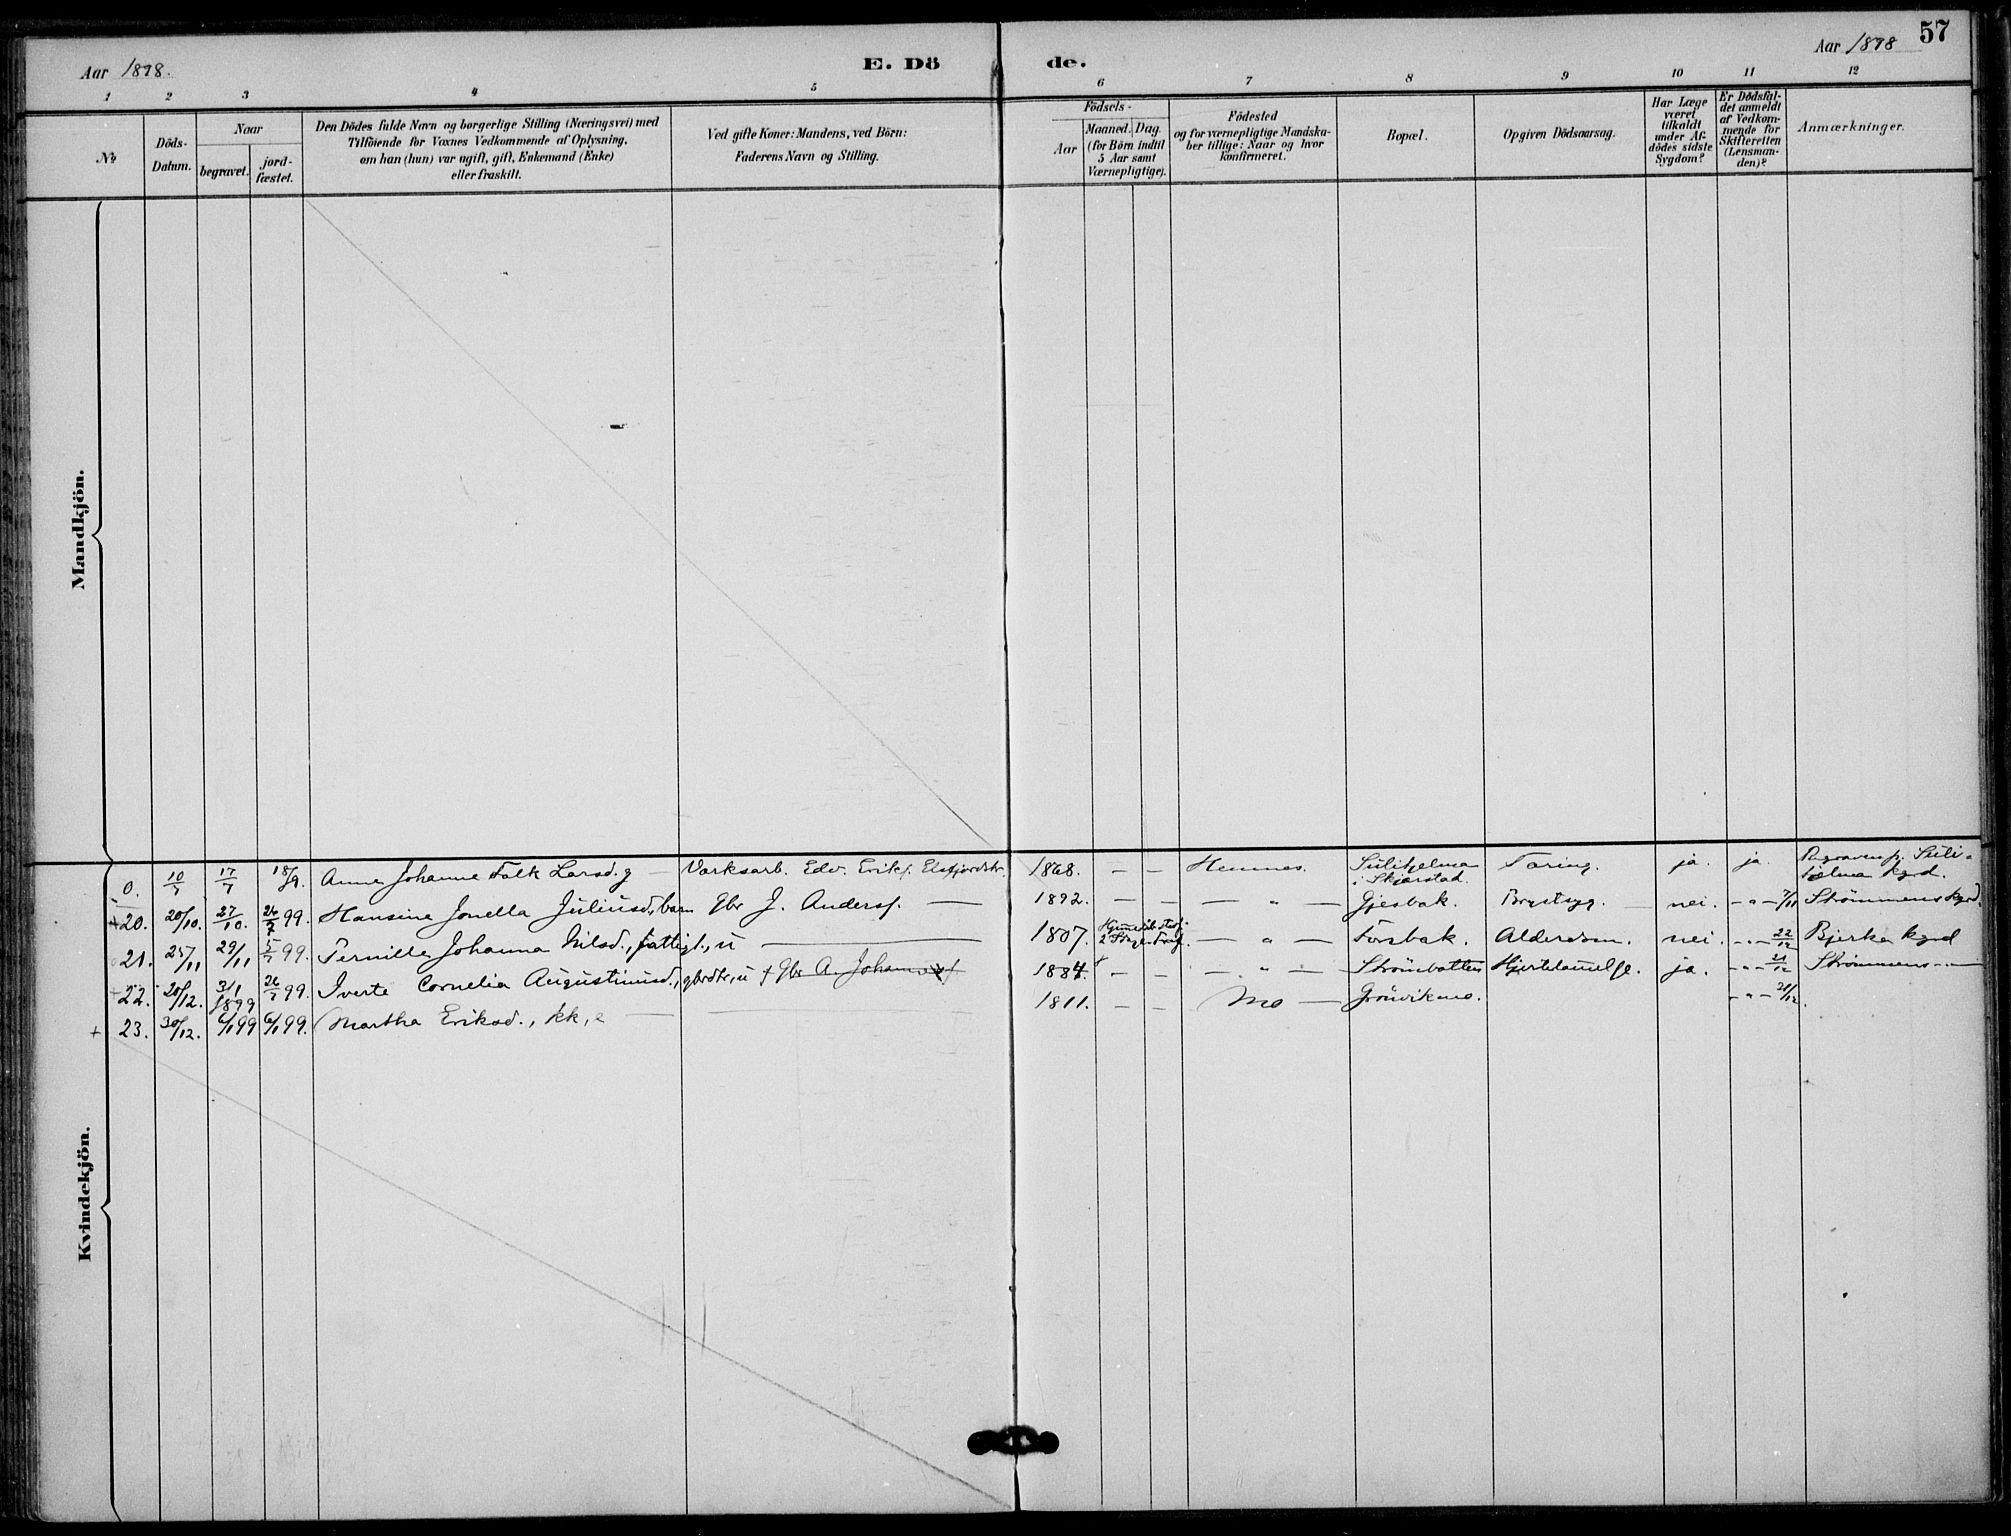 57
Aar 1898.
E. Dö
de.
Aar 1898
1 2 3 4 5 6 7 8 9 10 11 12
№
Döds-Datum.
Naar
begravet.
jord-fæstet.
Den Dödes fulde Navn og borgerlige Stilling (Næringsvei) med
Tilföiende for Voxnes Vedkommende af Oplysning,
om han (hun) var ugift, gift, Enkemand (Enke)
eller fraskilt.
Ved gifte Koner: Mandens, ved Börn:
Faderens Navn og Stilling.
Födsels-
Aar
Maaned. Dag.
(for Börn indtil
5 Aar samt
Værnepligtige).
Födested
og for værnepligtige Mandska-
ber tillige: Naar og hvor
konfirmeret.
Bopæl.
Opgiven Dödsaarsag.
Har Læge
været
tilkaldt
under Af-
dödes sidste
Sygdom?
Er Dödsfal-
det anmeldt
af Vedkom-
mende for
Skifteretten
(Lensman-
den)?
Anmærkninger.
Mandkjön.
Kvindekjön.
0. 10/7 17/7 18/9. Anna Johanne Falk Larsd. g — Værksarb. Edv. Eriks. Elsfjordstr. 1868. — — Hemnes. Sulitjelma i Skjærstad. Tæring. ja. ja. Begraven p. Sulitjelma kgrd.
+20. 20/10. 27/10. 99. Hansine Jonella Juliusd., barn Gbr J. Anders. — 1892. — — — " — Gjesbak. Brystsyg. — nei. — " — 7/11 Strømmens kgrd.
21. 25/11 29/11 99. Pernille Johanna Nilsd., fattigl., u — 1807. — " — Forsbak. Alderdom. nei. — " — 22/12 Bjerka kgrd
+22. 20/12. 3/1 1899 99. Iverte Cornelia Augustinusd., gbrdtr., u + Gbr A. Johannes. 1884. — — — " — Strømbotten Hjertelammelse. ja. — " — 21/12 Strømmens —"—
+ 23. 30/12. 6/1 99 6/1 99. Martha Eriksd., kk, e — 1811. — — Mo — Grønvikmo. — " —